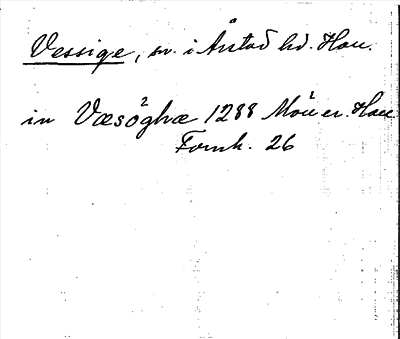 Vessige, sn. i Årstad hd. Hall.
in Væsöghæ 1288 Möller. Hall
Fornh. 26